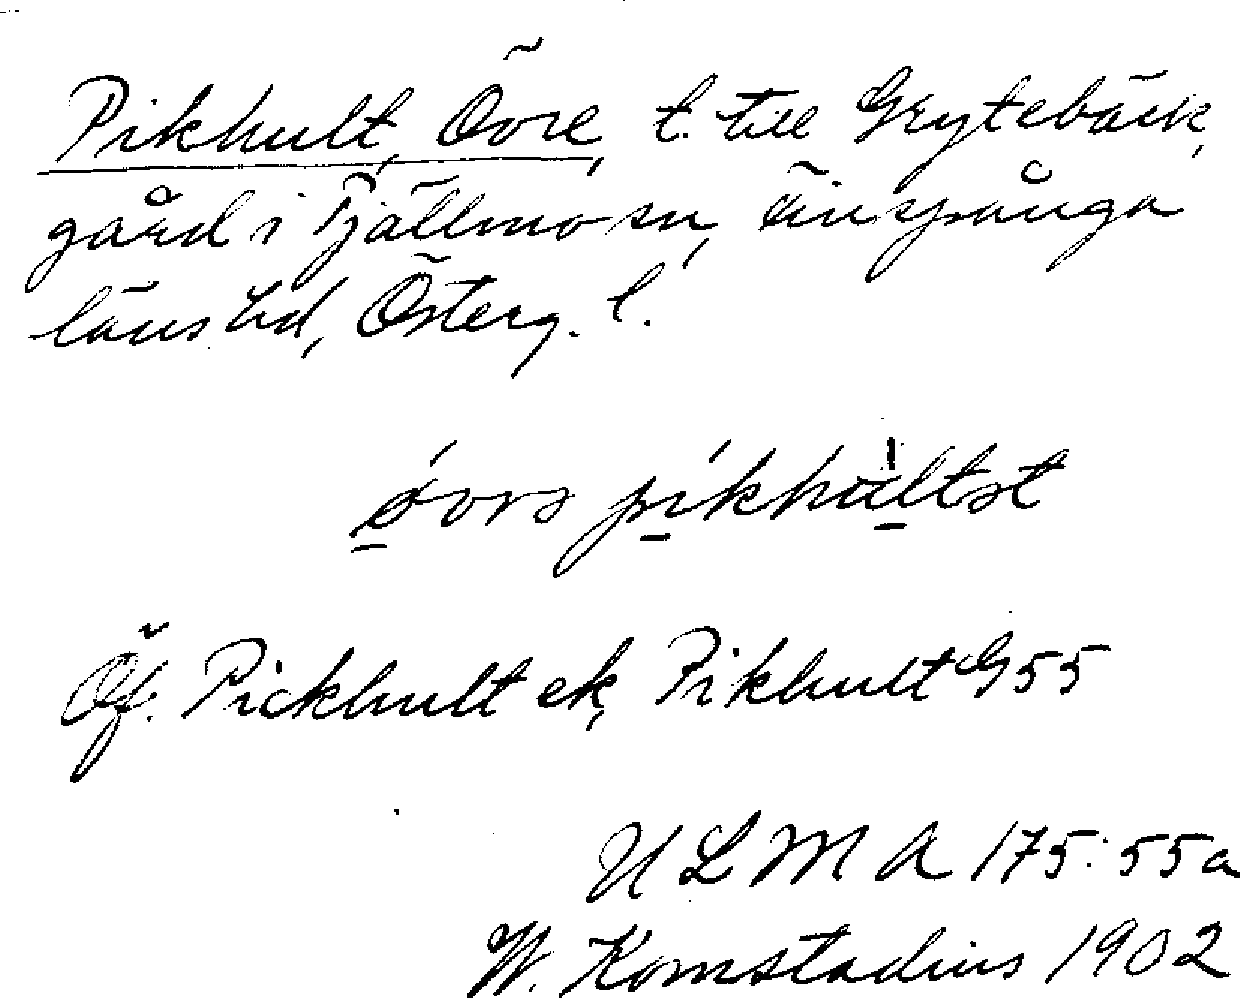 Pikhult, Övre, t. till Grytebäck,
gård i Tjällmo sn, Finspånga
läns hd, Österg. l.
Öf. Pickhult ek, Pikhult G55
ULMA 175:55a
W. Komstadius 1902